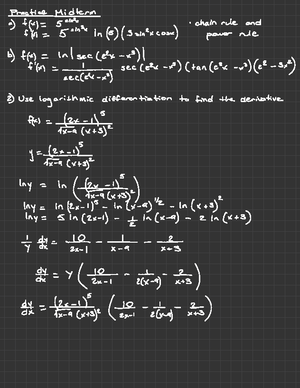 Practice Midterm
a) f(x) = 5^(sin³x) · chain rule and
f'(x) = 5^(sin³x) ln(5) (3 sin²x cosx) power rule
b) f(x) = ln|sec(e²x - x³)|
f'(x) = 1/(sec(e²x - x³)) sec(e²x - x³)(tan(e²x - x³)(e² - 3x²)
2) Use logarithmic differentiation to find the derivative
f(x) = (2x-1)⁵/(√x-9 (x+3)²)
y = (2x-1)⁵/(√x-9 (x+3)²)
lny = ln((2x-1)⁵/(√x-9 (x+3)²))
lny = ln(2x-1)⁵ - ln(x-9)^(1/2) - ln(x+3)²
lny = 5 ln(2x-1) - 1/2 ln(x-9) - 2 ln(x+3)
1/y dy/dx = 10/(2x-1) - 1/(x-9) - 2/(x+3)
dy/dx = y(10/(2x-1) - 1/(2(x-9)) - 2/(x+3))
dy/dx = (2x-1)⁵/(√x-9 (x+3)²) (10/(2x-1) - 1/(2(x-9)) - 2/(x+3))